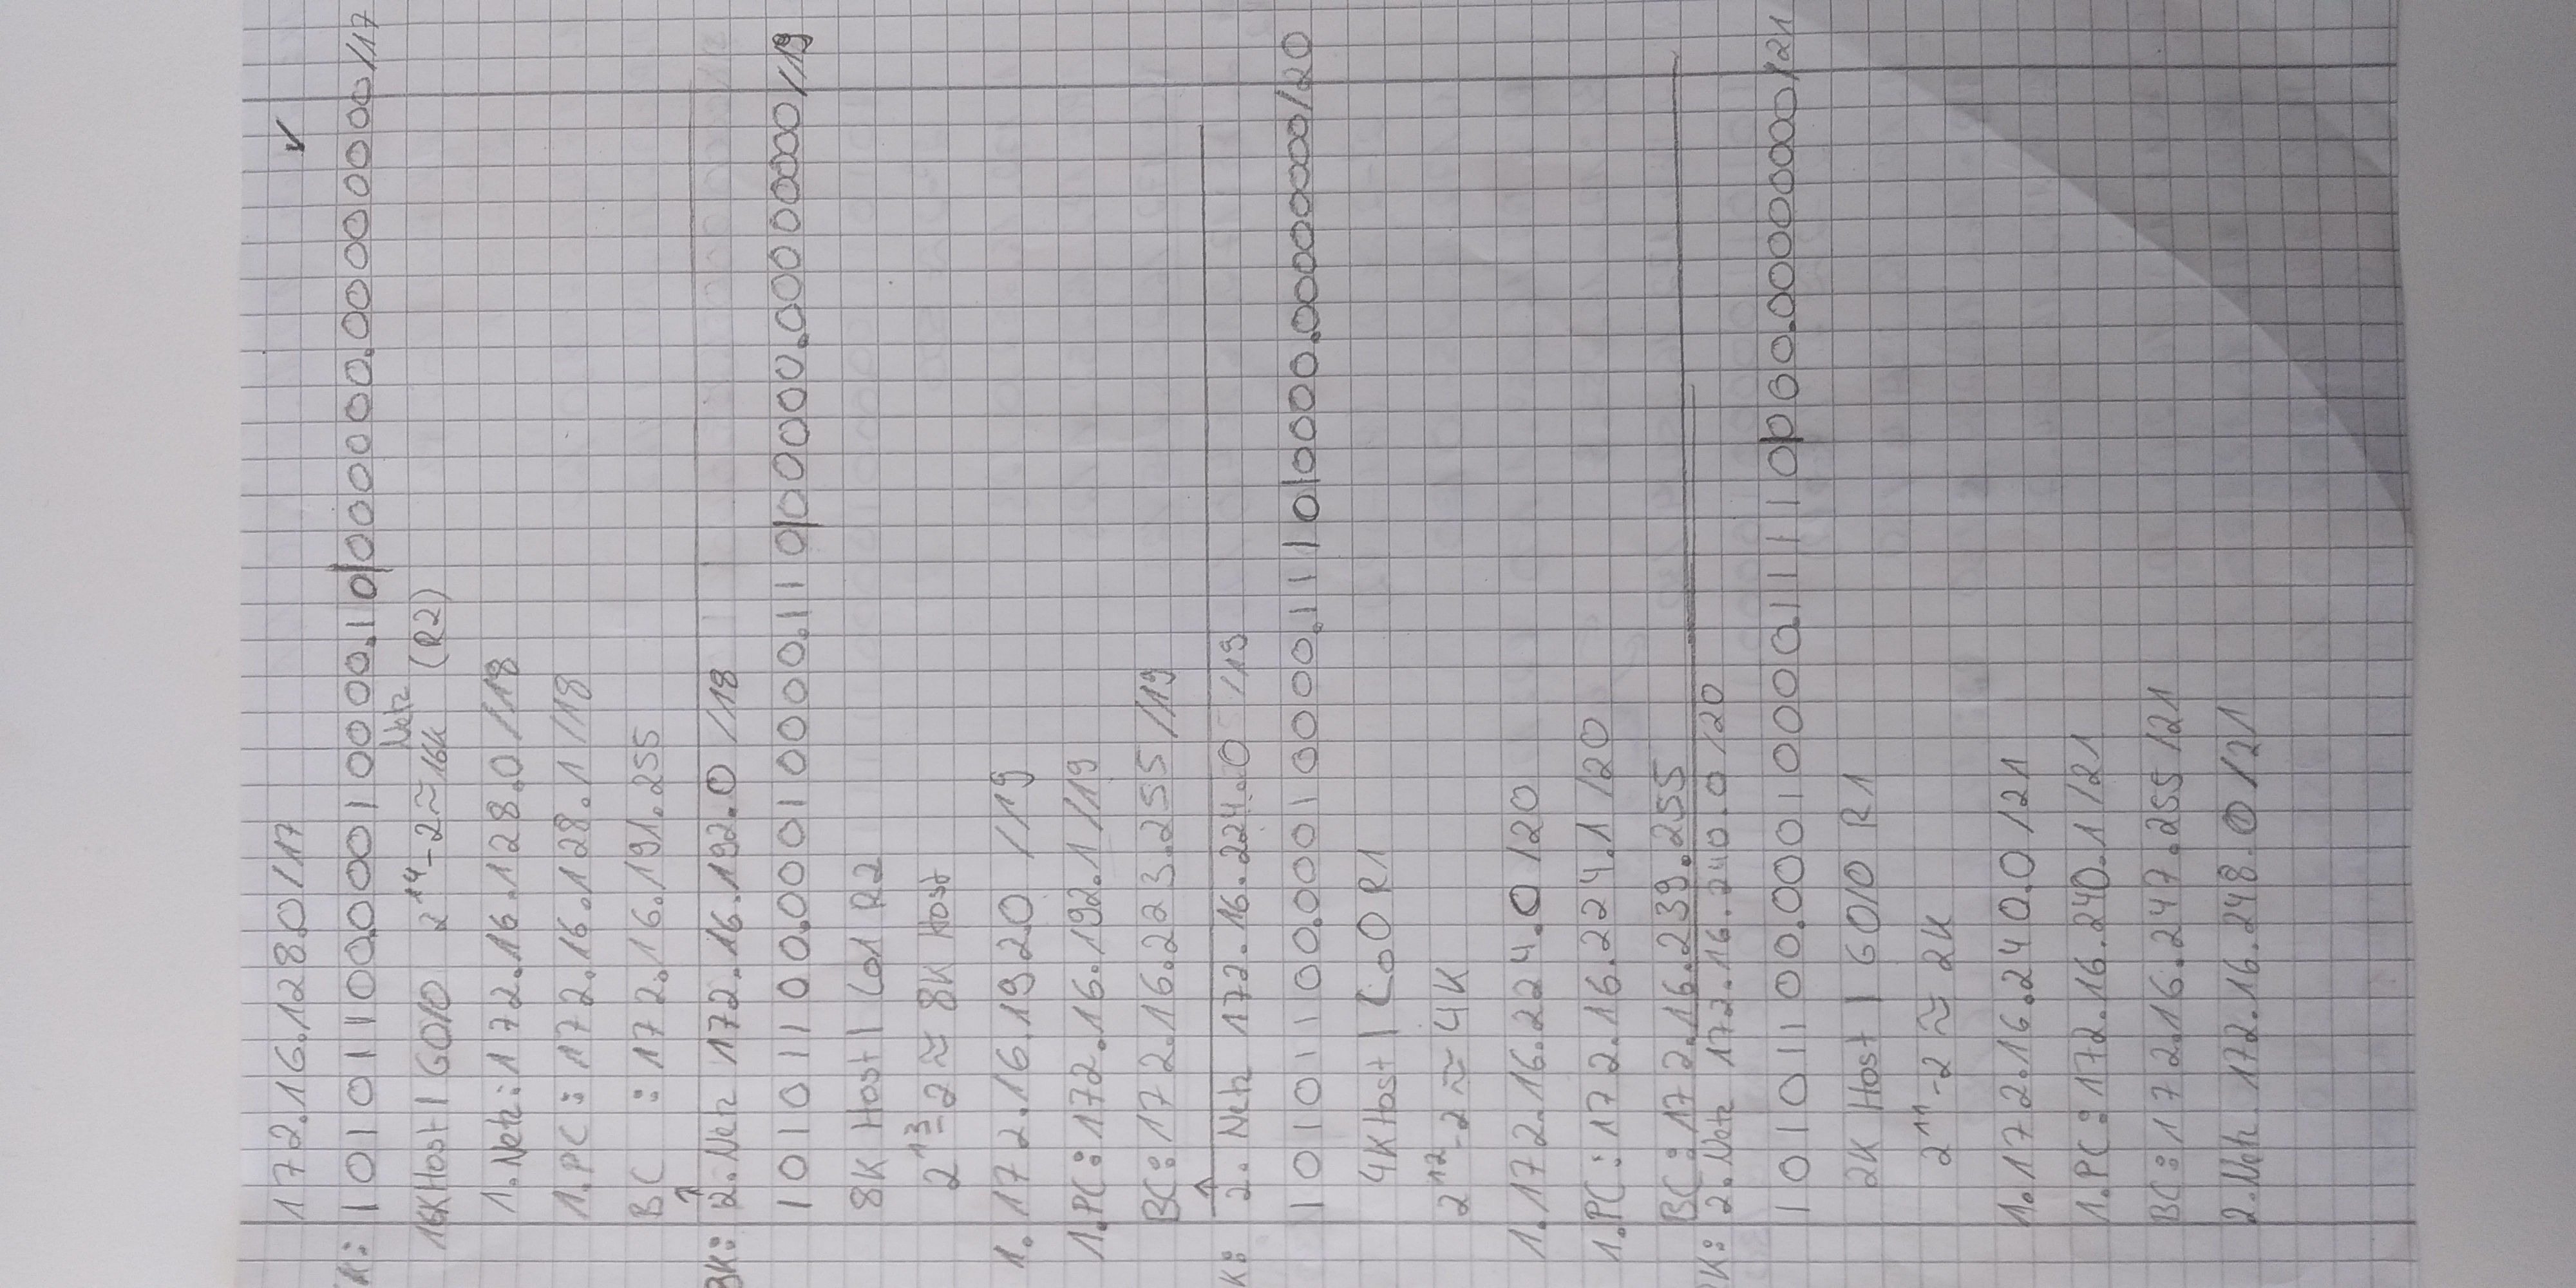 172.16.128.0/17 ✓
K: 10101100.00010000.10|000000.00000000/17
Netz
16KHost | G0/0 2^14-2≈16K (R2)
1. Netz: 172.16.128.0/18
1. PC: 172.16.128.1/18
BC : 172.16.191.255
↑
8K: 2. Netz 172.16.192.0 /18
10101100.00010000.110|00000.00000000/19
8K Host | Lo1 R2
2^13-2 ≈ 8K Host
1. 172.16.192.0 /19
1.PC: 172.16.192.1/19
BC: 172.16.223.255/19
↑
K: 2. Netz 172.16.224.0 /19
10101100.00010000.1110|0000.00000000/20
4KHost | Lo0 R1
2^12-2≈4K
1. 172.16.224.0 /20
1.PC: 172.16.224.1 /20
BC: 172.16.239.255
2K: 2. Netz 172.16.240.0 /20
10101100.00010000.11110|000.00000000/21
2K Host | G0/0 R1
2^11-2 ≈ 2K
1. 172.16.240.0 /21
1.PC: 172.16.240.1 /21
BC: 172.16.247.255 /21
2.Netz 172.16.248.0 /21